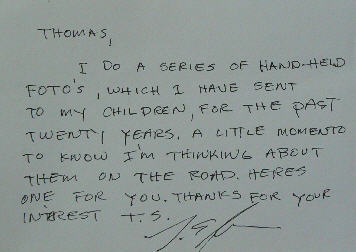 THOMAS,
I DO A SERIES OF HAND-HELD
FOTO'S, WHICH I HAVE SENT
TO MY CHILDREN, FOR THE PAST
TWENTY YEARS. A LITTLE MOMENTO
TO KNOW I'M THINKING ABOUT
THEM ON THE ROAD. HERES
ONE FOR YOU. THANKS FOR YOUR
INTEREST T.S.